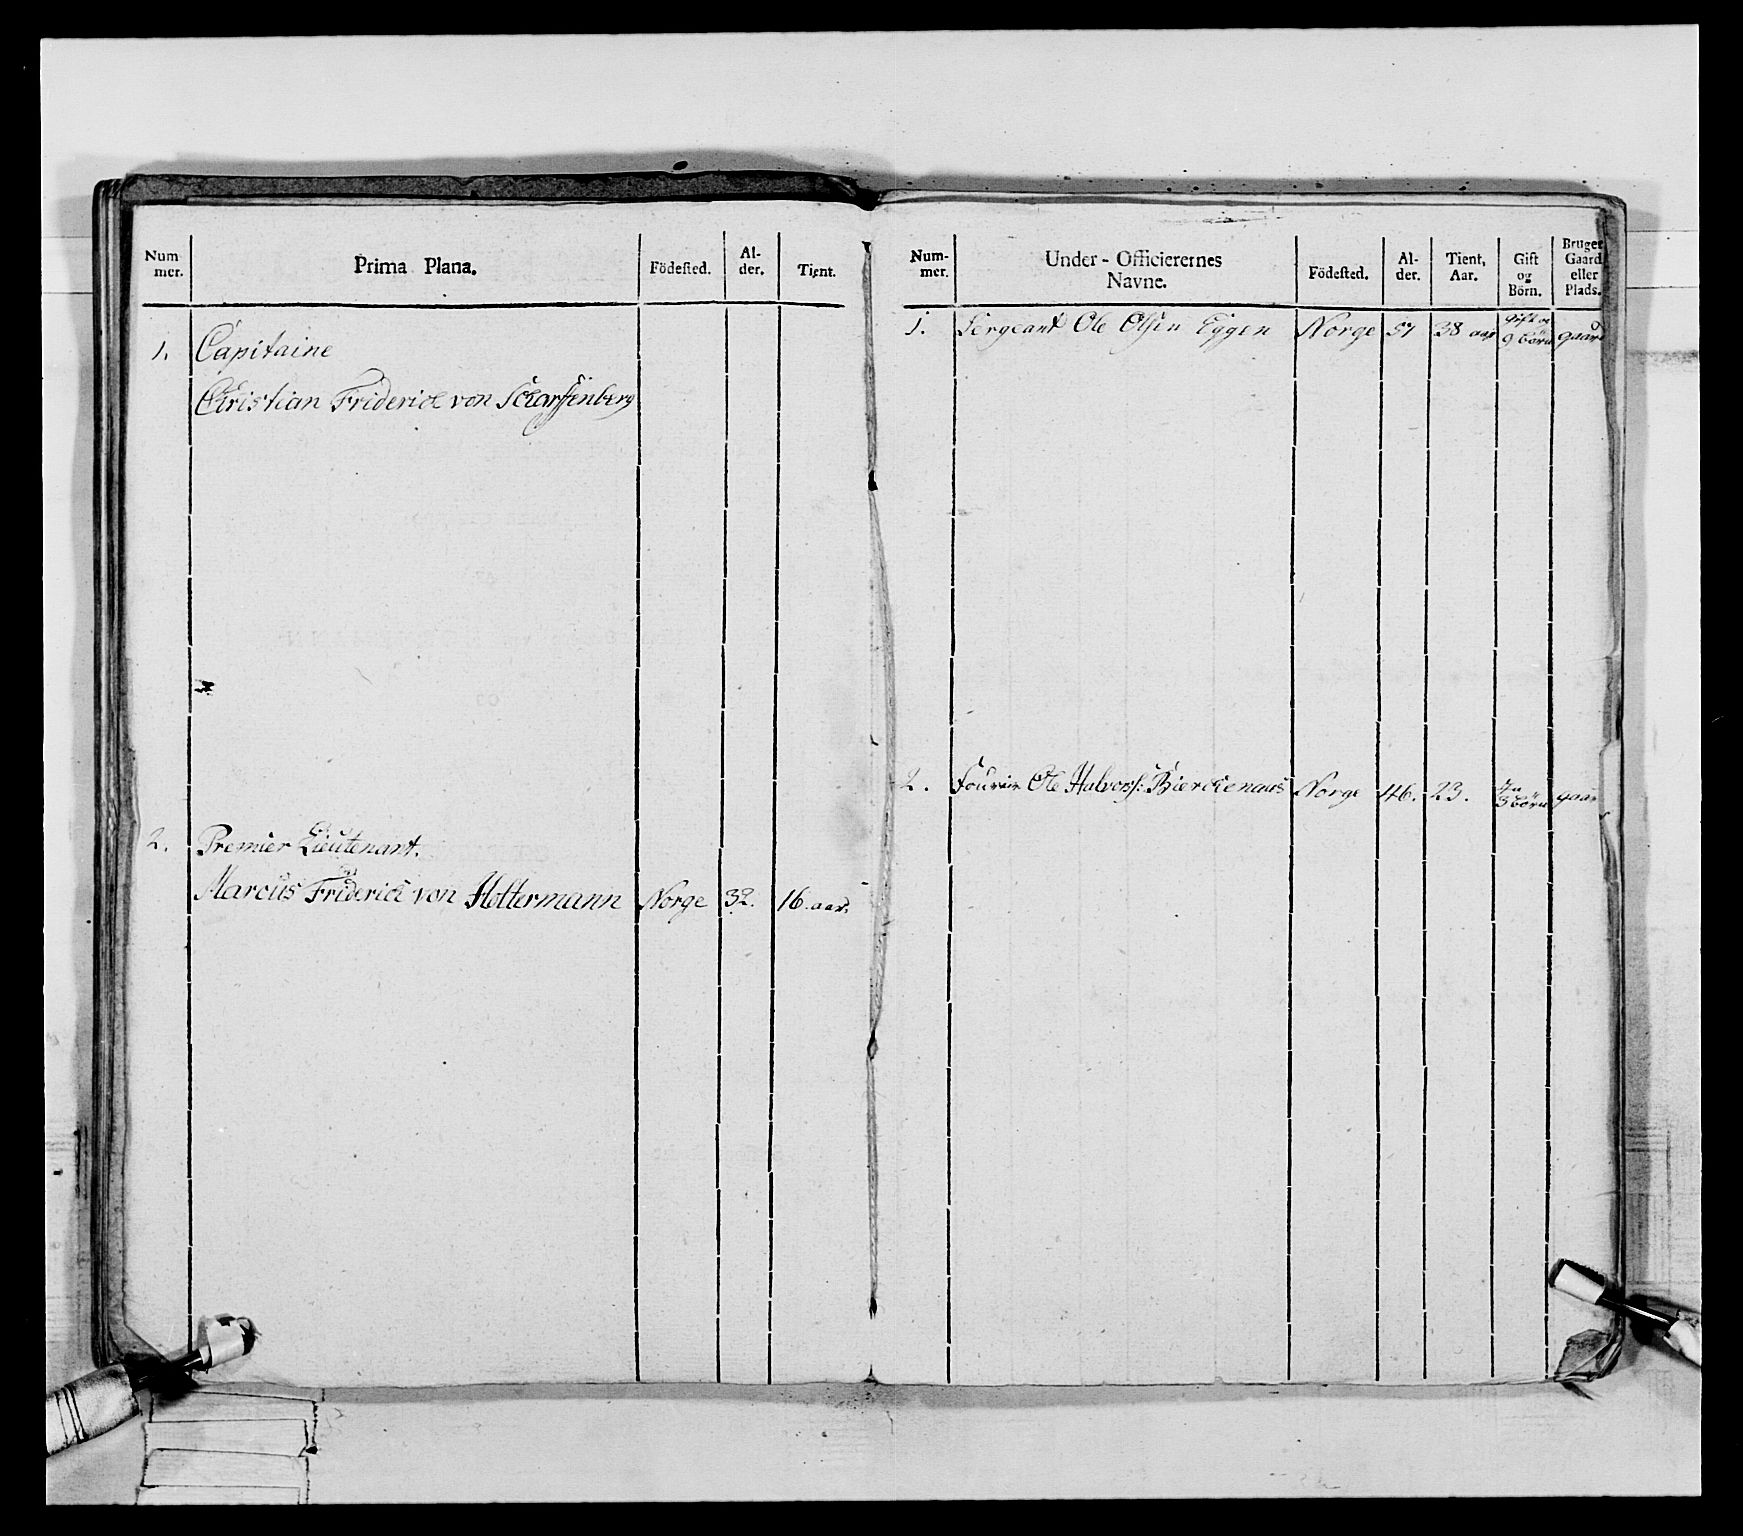 Num-
mer.
Prima Plana.
Födested.
Al-
der.
Tient.
1. Capitaine
Christian Friderich von Scharffenberg
2. Premier Lieutenant.
Marcus Friderich von Holtermann Norge 32. 16 aar.
Num-
mer.
Under-Officierernes
Navne.
Födested.
Al-
der.
Tient,
Aar.
Gift
og
Börn.
Bruger
Gaard
eller
Plads.
1. Sergeant Ole Olsen Eggen Norge 57 38 aar Gift og
9 börn gaard
2. Fourier Ole Halvors: Norge 46. 23.
3 börn gaar